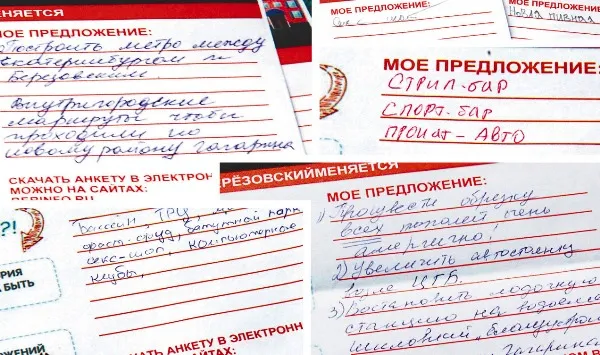 НЯЕТСЯ
МОЕ ПРЕДЛОЖЕНИЕ:
Построить метро между
Екатеринбургом и
Березовским.
Внутригородские
маршруты чтобы
проходили по
новому району Гагарина
СКАЧАТЬ АНКЕТУ В ЭЛЕКТРОН
МОЖНО НА САЙТАХ:
МОЕ ПРЕДЛОЖЕНИЕ:
МОЕ ПРЕДЛОЖЕНИЕ:
МОЕ ПРЕДЛОЖЕНИЕ:
СТРИП-бАР
СПОРТ-бАР
ПРОКАТ-АВТО
?!
РИЯ
БЫТЬ
ЖЕНИЙ
Бассейн ТРЦ,
фаст-фуд, батутный парк
секс-шоп, компьютерные
клубы,
СКАЧАТЬ АНКЕТУ В ЭЛЕКТРОНН
МОЖНО НА САЙТАХ:
ЕРЁЗОВСКИЙМЕНЯЕТСЯ
МОЕ ПРЕДЛОЖЕНИЕ:
1) Произвести обрезку
всех тополей
2) Увеличить автостоянку
ЦГБ.
3) Восстановить лодочную
станцию на
Гагарина